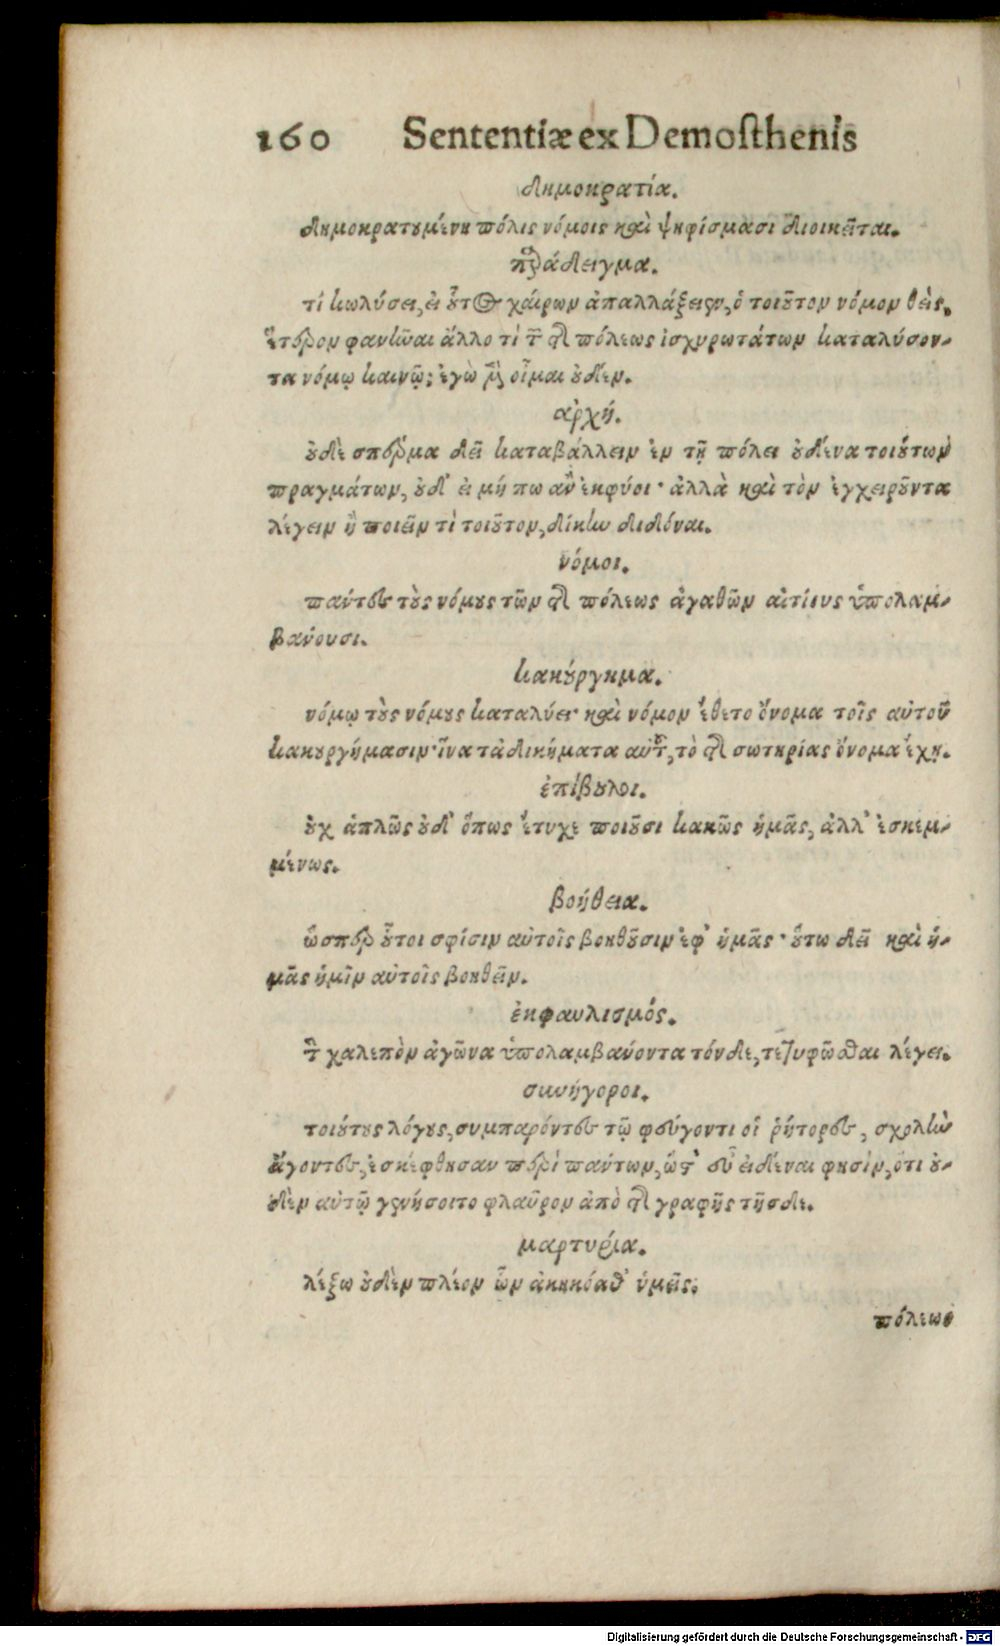 160 Sententiæ ex Demosthenis
δημοκρατία.
δημοκρατουμένη πόλις νόμοις καὶ ψηφίσμασι διοικεῖται.
παράδειγμα.
τί κωλύσει, εἰ οὗτος χαίρων ἀπαλλάξειεν, ὁ τοιοῦτον νόμον θεὶς,
ἕτερον φανῆναι ἄλλο τὶ τῶν τῆς πόλεως ἰσχυρωτάτων καταλύσον-
τα νόμῳ καινῷ; ἐγὼ μὲν οἶμαι οὐδέν.
αρχή.
οὐδὲ σπέρμα δεῖ καταβάλλειν ἐν τῇ πόλει οὐδένα τοιούτων
πραγμάτων, οὐδ' εἰ μή πω ἂν ἐκφύοι· ἀλλὰ καὶ τὸν ἐγχειροῦντα
λέγειν ἢ ποιεῖν τὶ τοιοῦτον, δίκην διδόναι.
νόμοι.
πάντες τοὺς νόμους τῶν τῆς πόλεως ἀγαθῶν αἰτίους ὑπολαμ-
βάνουσι.
κακούργημα.
νόμῳ τοὺς νόμους καταλύει· καὶ νόμον ἔθετο ὄνομα τοῖς αὐτοῦ
κακουργήμασιν· ἵνα τἀδικήματα αὐτοῦ, τὸ τῆς σωτηρίας ὄνομα ἔχῃ.
ἐπίβουλοι.
οὐχ ἁπλῶς οὐδ' ὅπως ἔτυχε ποιοῦσι κακῶς ἡμᾶς, ἀλλ' ἐσκεμ-
μένως.
βοήθεια.
ὥσπερ οὗτοι σφίσιν αὐτοῖς βοηθοῦσιν ἐφ' ἡμᾶς· οὕτω δεῖ καὶ ἡ-
μᾶς ἡμῖν αὐτοῖς βοηθεῖν.
ἐκφαυλισμός.
τὸν χαλεπὸν ἀγῶνα ὑπολαμβάνοντα τόνδε, τετυφῶσθαι λέγει.
συνήγοροι.
τοιούτους λόγους, συμπαρόντες τῷ φεύγοντι οἱ ῥήτορες, σχολὴν
ἄγοντες, ἐσκέφθησαν περὶ πάντων, ὥστ' εὖ εἰδέναι φησὶν, ὅτι οὐ-
δὲν αὐτῷ γενήσοιτο φλαῦρον ἀπὸ τῆς γραφῆς τῆσδε.
μαρτυρία.
λέξω οὐδὲν πλέον ὧν ἀκηκόαθ' ὑμεῖς.
πόλεως
Digitalisierung gefördert durch die Deutsche Forschungsgemeinschaft - DFG